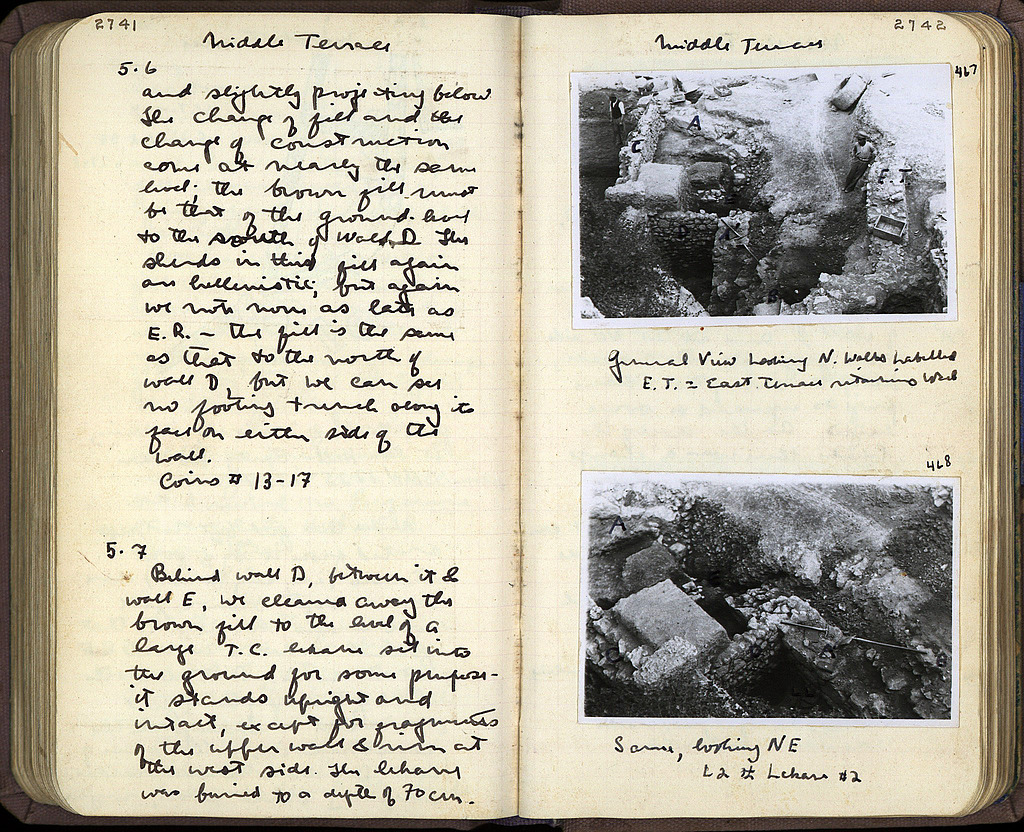 2741
Middle Terrace
5.6
and slightly projecting below
The change of fill and the
change of construction
come at nearly the same
level; the brown fill must
be that of the ground-level
to the south of Wall D. The
sherds in this fill again
are hellenistic; but again
we note none as late as
E.R. – the fill is the same
as that to the north of
wall D, but we can see
no footing trench along its
face on either side of the
wall.
Coins # 13-17
5.7
Behind wall D, between it &
wall E, we cleaned away the
brown fill to the level of a
large T.C. lekane set into
the ground for some purpose-
it stands upright and
intact, except for fragments
of the upper wall & rim at
the west side. The lekane
was buried to a depth of 70 cm.
2742
Middle Terrace
467
A
C
E.T.
D
B
General View looking N. Walls labelled
E.T. = East Terrace retaining wall
468
A
C
D
B
Same, looking NE
L2 = Lekane #2